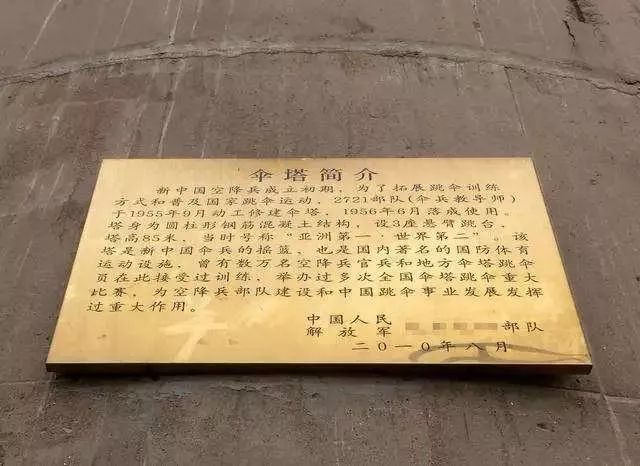 伞塔简介
新中国空降兵成立初期，为了拓展跳伞训练
方式和普及国家跳伞运动，2721部队（伞兵教导师）
于1955年9月动工修建伞塔，1956年6月落成使用。
塔身为圆柱形钢筋混凝土结构，设3座悬臂跳台，
塔高85米，当时号称“亚洲第一，世界第二”。该
塔是新中国伞兵的摇篮，也是国内著名的国防体育
运动设施，曾有数万名空降兵官兵和地方伞塔跳伞
员在此接受过训练，举办过多次全国伞塔跳伞重大
比赛，为空降兵部队建设和中国跳伞事业发展发挥
过重大作用。
中国人民
解放军 部队
二〇一〇年八月